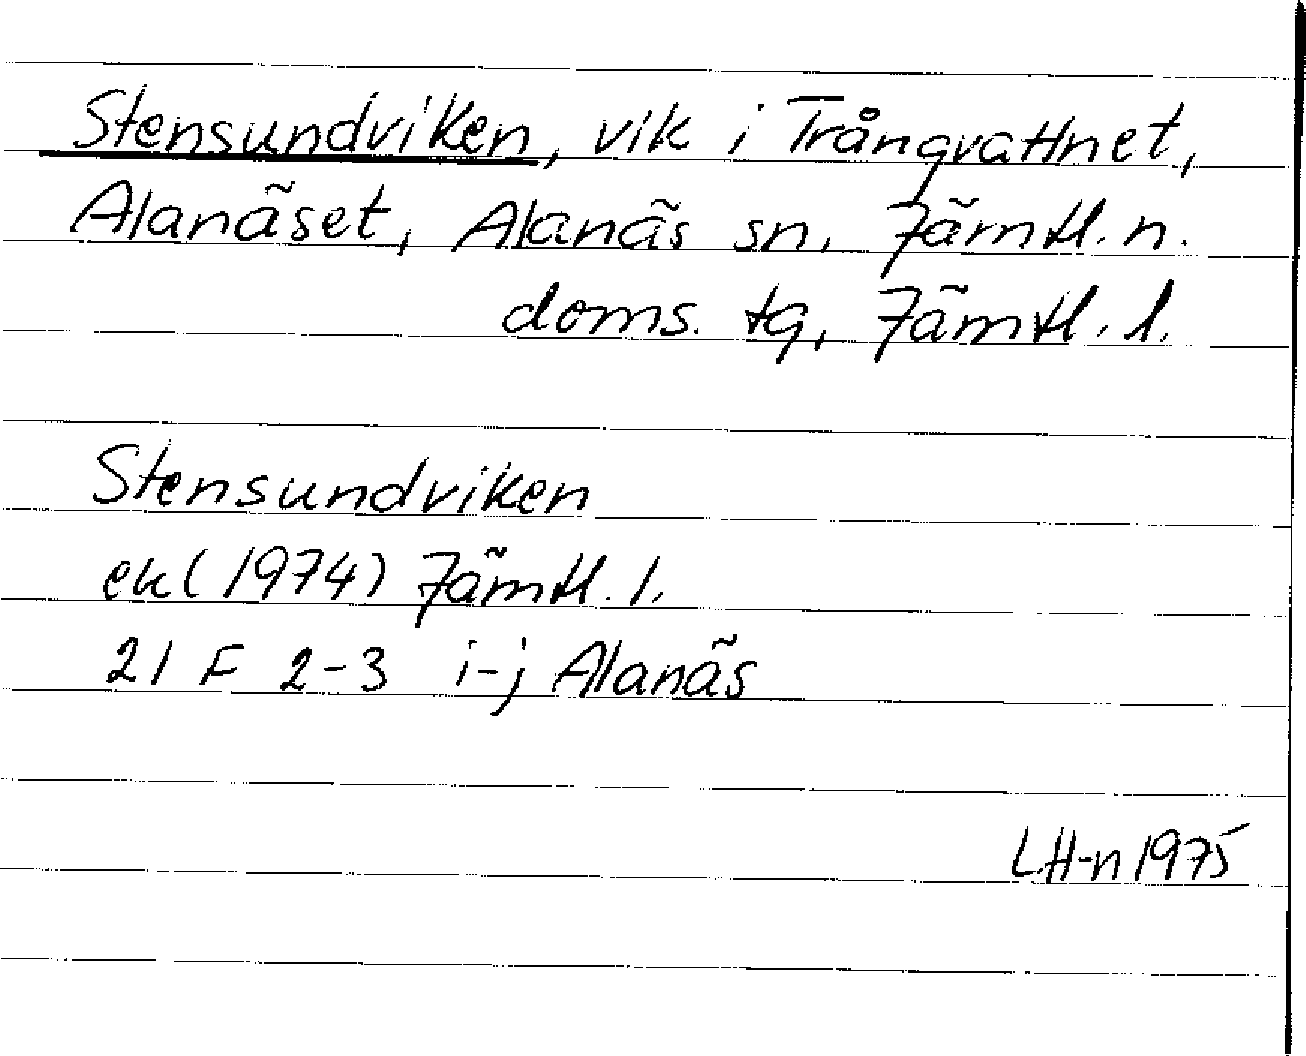 Stensundviken, vik i Trångvattnet,
Alanäset, Alanäs sn, Jämtl. n.
doms. tg, Jämtl. l.
Stensundviken
ek (1974) Jämtl. l.
21 F 2-3 i-j Alanäs
LH-n 1975